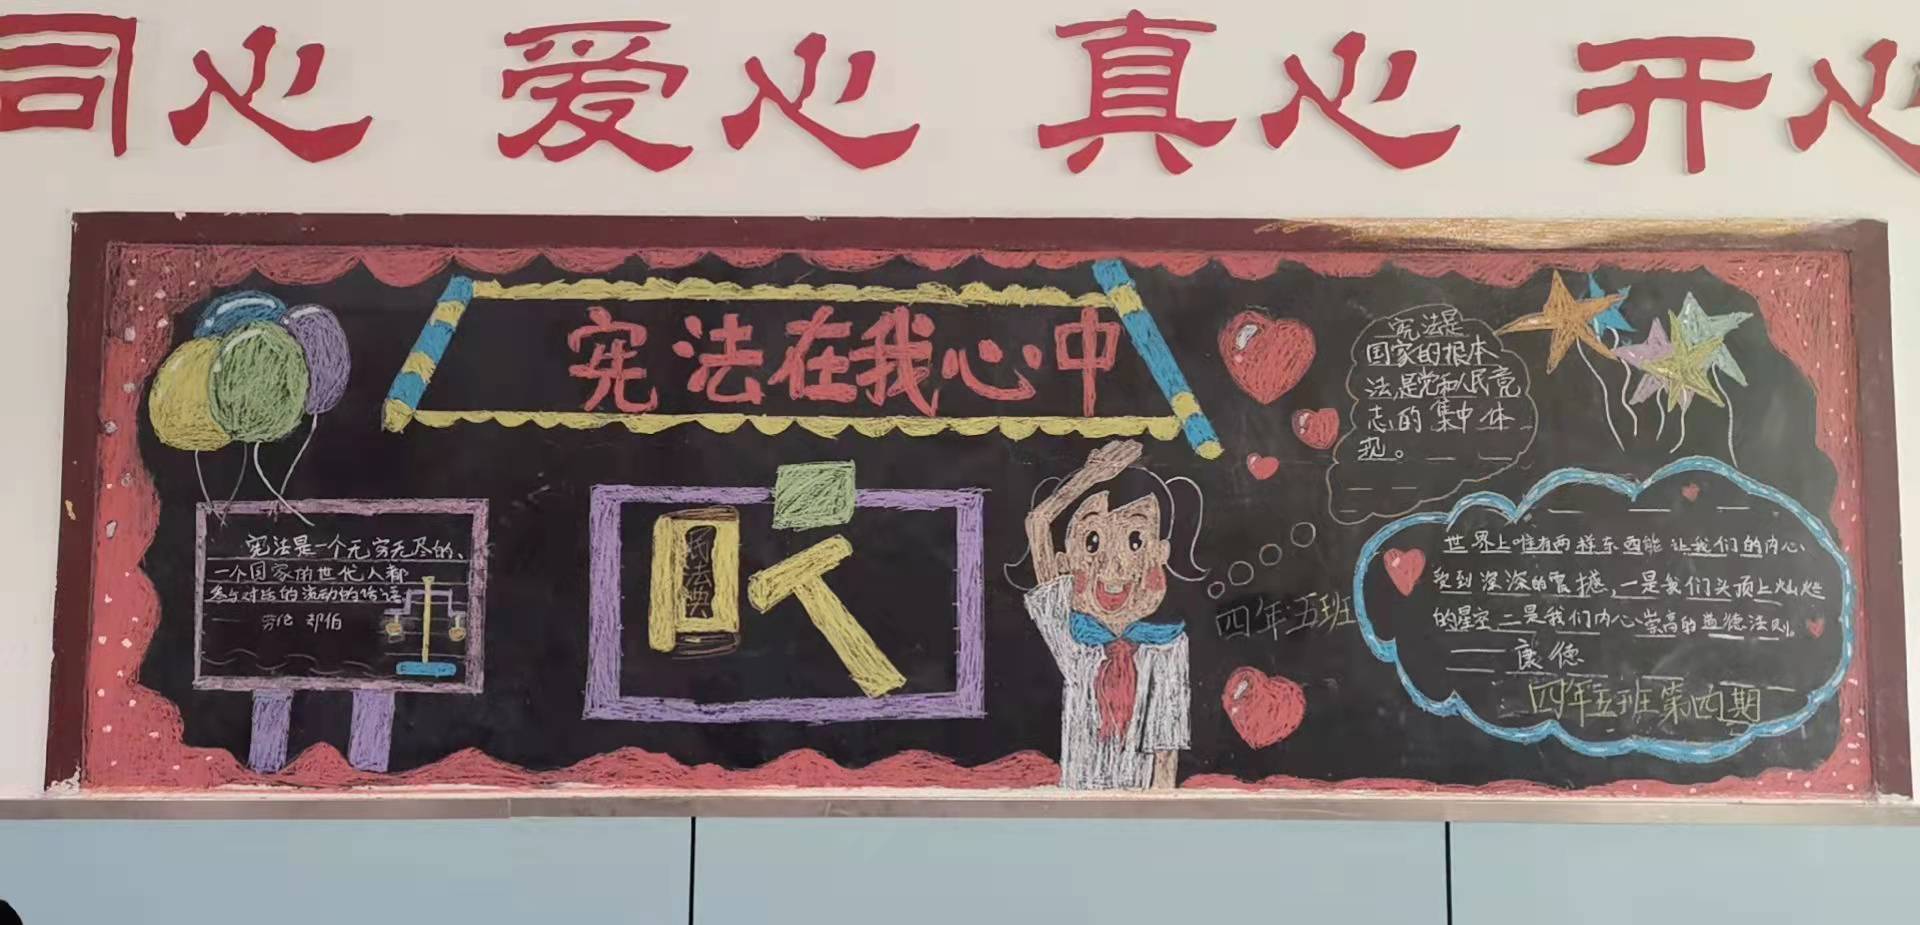 同心 爱心 真心 开心
宪法在我心中
宪法是一个无穷无尽的、
一个国家的世代人都
参与对话的流动的话语
劳伦 却伯
民法典
宪法是
国家的根本
法,是党和人民意
志的集中体
现。
四年五班
世界上唯有两样东西能让我们的内心
受到深深的震撼,一是我们头顶上灿烂
的星空 二是我们内心崇高的道德法则。
——康德
四年五班第四期